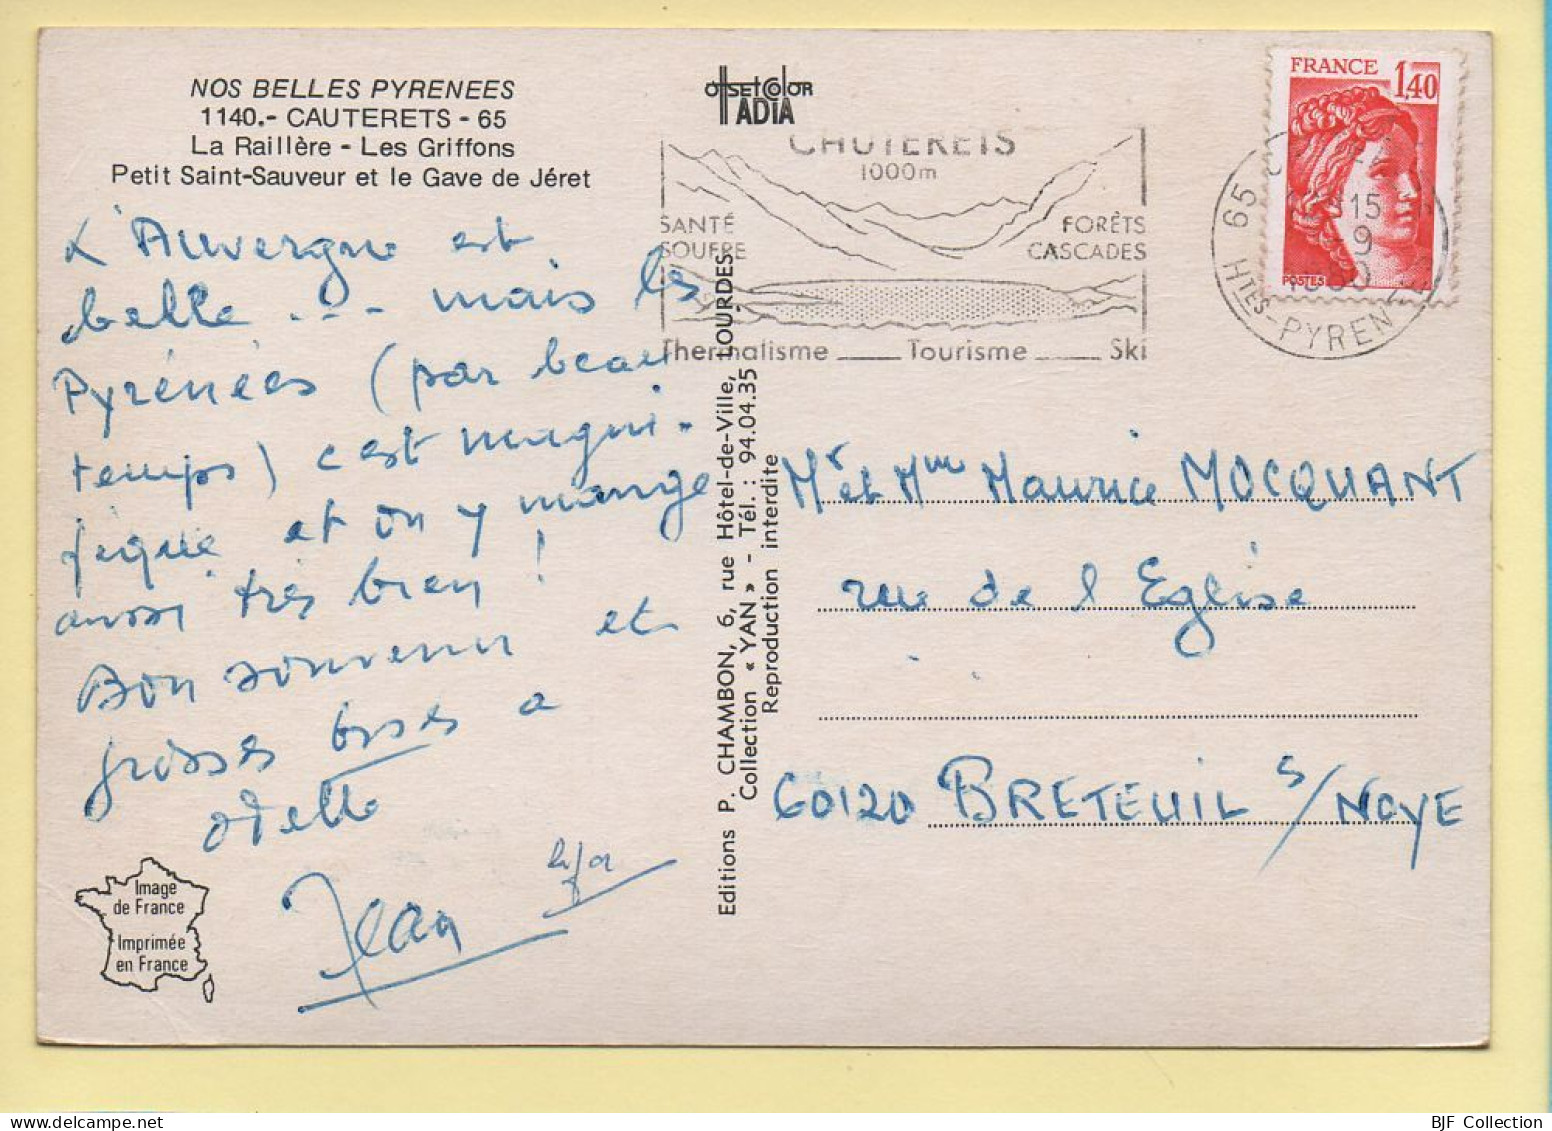 NOS BELLES PYRENEES
1140.- CAUTERETS - 65
La Raillère - Les Griffons
Petit Saint-Sauveur et le Gave de Jéret
L'Auvergne est
belle ... mais les
Pyrénées (par beau
temps) c'est magni-
fique et on y mange
aussi très bien !
Bon souvenir et
grosses bises a
odette
Jean
Image
de France
Imprimée
en France
OffsetColor
ADIA
CAUTERETS
1000m
SANTÉ
SOUFRE
FORÊTS
CASCADES
Thermalisme ___ Tourisme ___ Ski
Editions P. CHAMBON, 6, rue Hôtel-de-Ville, LOURDES
Collection « YAN » - Tél. : 94.04.35
Reproduction interdite
FRANCE 1,40
POSTES
65
15
9
HTES-PYREN
Mr et Mme Maurice MOCQUANT
rue de l Eglise
60120 BRETEUIL s/ NOYE
BJF Collection